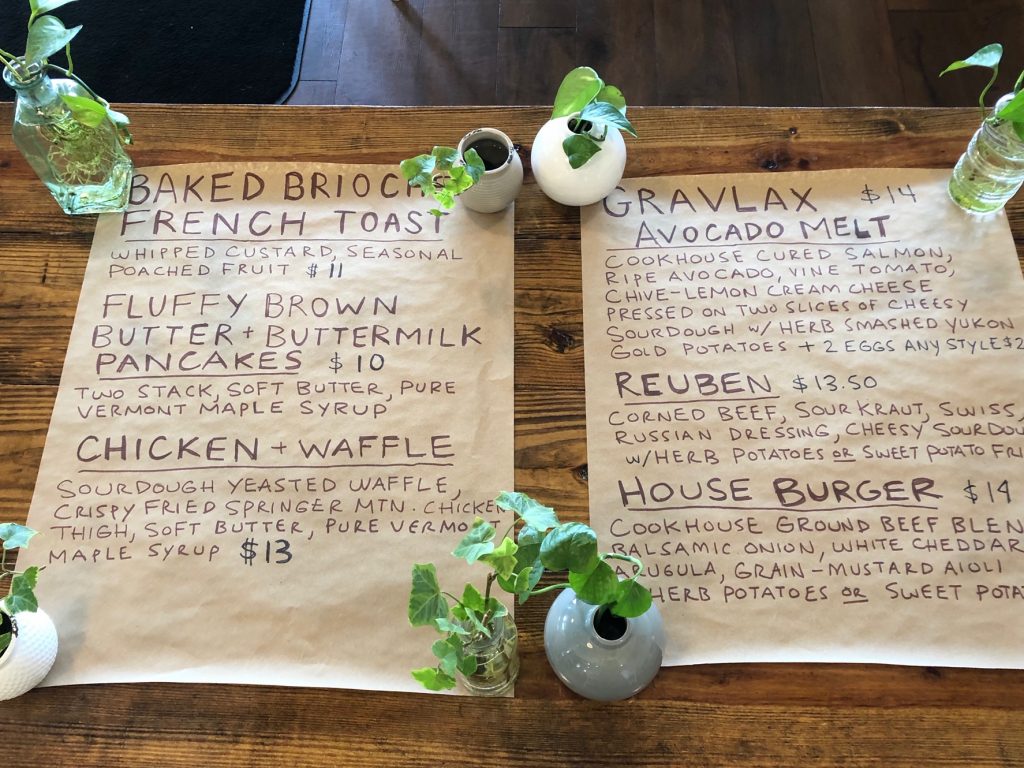 BAKED BRIOCHE
FRENCH TOAST
WHIPPED CUSTARD, SEASONAL
POACHED FRUIT $11
FLUFFY BROWN
BUTTER + BUTTERMILK
PANCAKES $10
TWO STACK, SOFT BUTTER, PURE
VERMONT MAPLE SYRUP
CHICKEN + WAFFLE
SOURDOUGH YEASTED WAFFLE,
CRISPY FRIED SPRINGER MTN. CHICKEN
THIGH, SOFT BUTTER, PURE VERMONT
MAPLE SYRUP $13
GRAVLAX $14
AVOCADO MELT
COOKHOUSE CURED SALMON,
RIPE AVOCADO, VINE TOMATO,
CHIVE-LEMON CREAM CHEESE
PRESSED ON TWO SLICES OF CHEESY
SOURDOUGH W/ HERB SMASHED YUKON
GOLD POTATOES + 2 EGGS ANY STYLE $2
REUBEN $13.50
CORNED BEEF, SOUR KRAUT, SWISS,
RUSSIAN DRESSING, CHEESY SOURDOU
W/HERB POTATOES OR SWEET POTATO FRI
HOUSE BURGER $14
COOKHOUSE GROUND BEEF BLEN
BALSAMIC ONION, WHITE CHEDDAR
ARUGULA, GRAIN-MUSTARD AIOLI
HERB POTATOES OR SWEET POTA